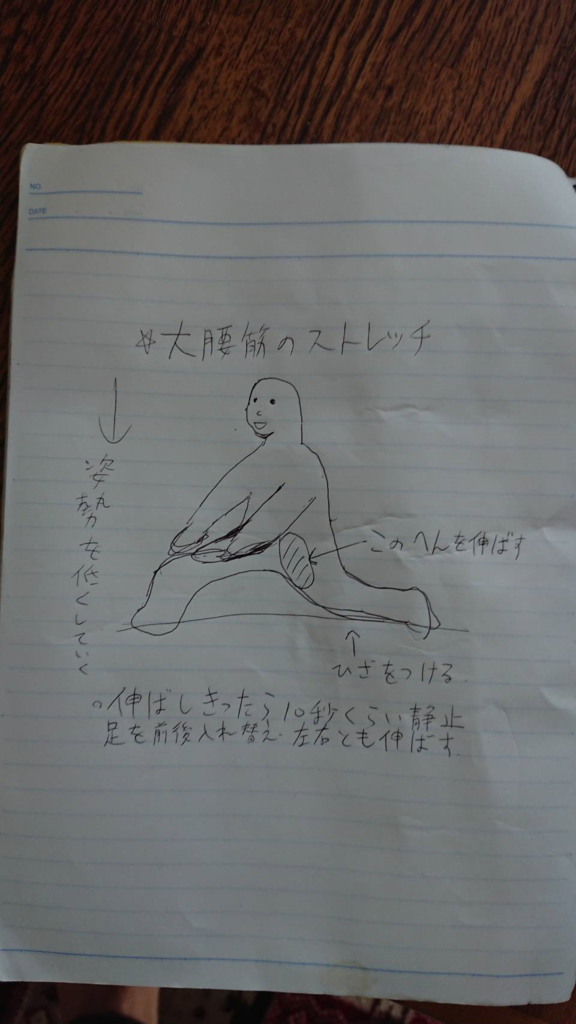 NO.
DATE
☆大腰筋のストレッチ
↓姿勢を低くしていく
←このへんを伸ばす
↑
ひざをつける
○伸ばしきったら10秒くらい静止
足を前後入れ替え、左右とも伸ばす。